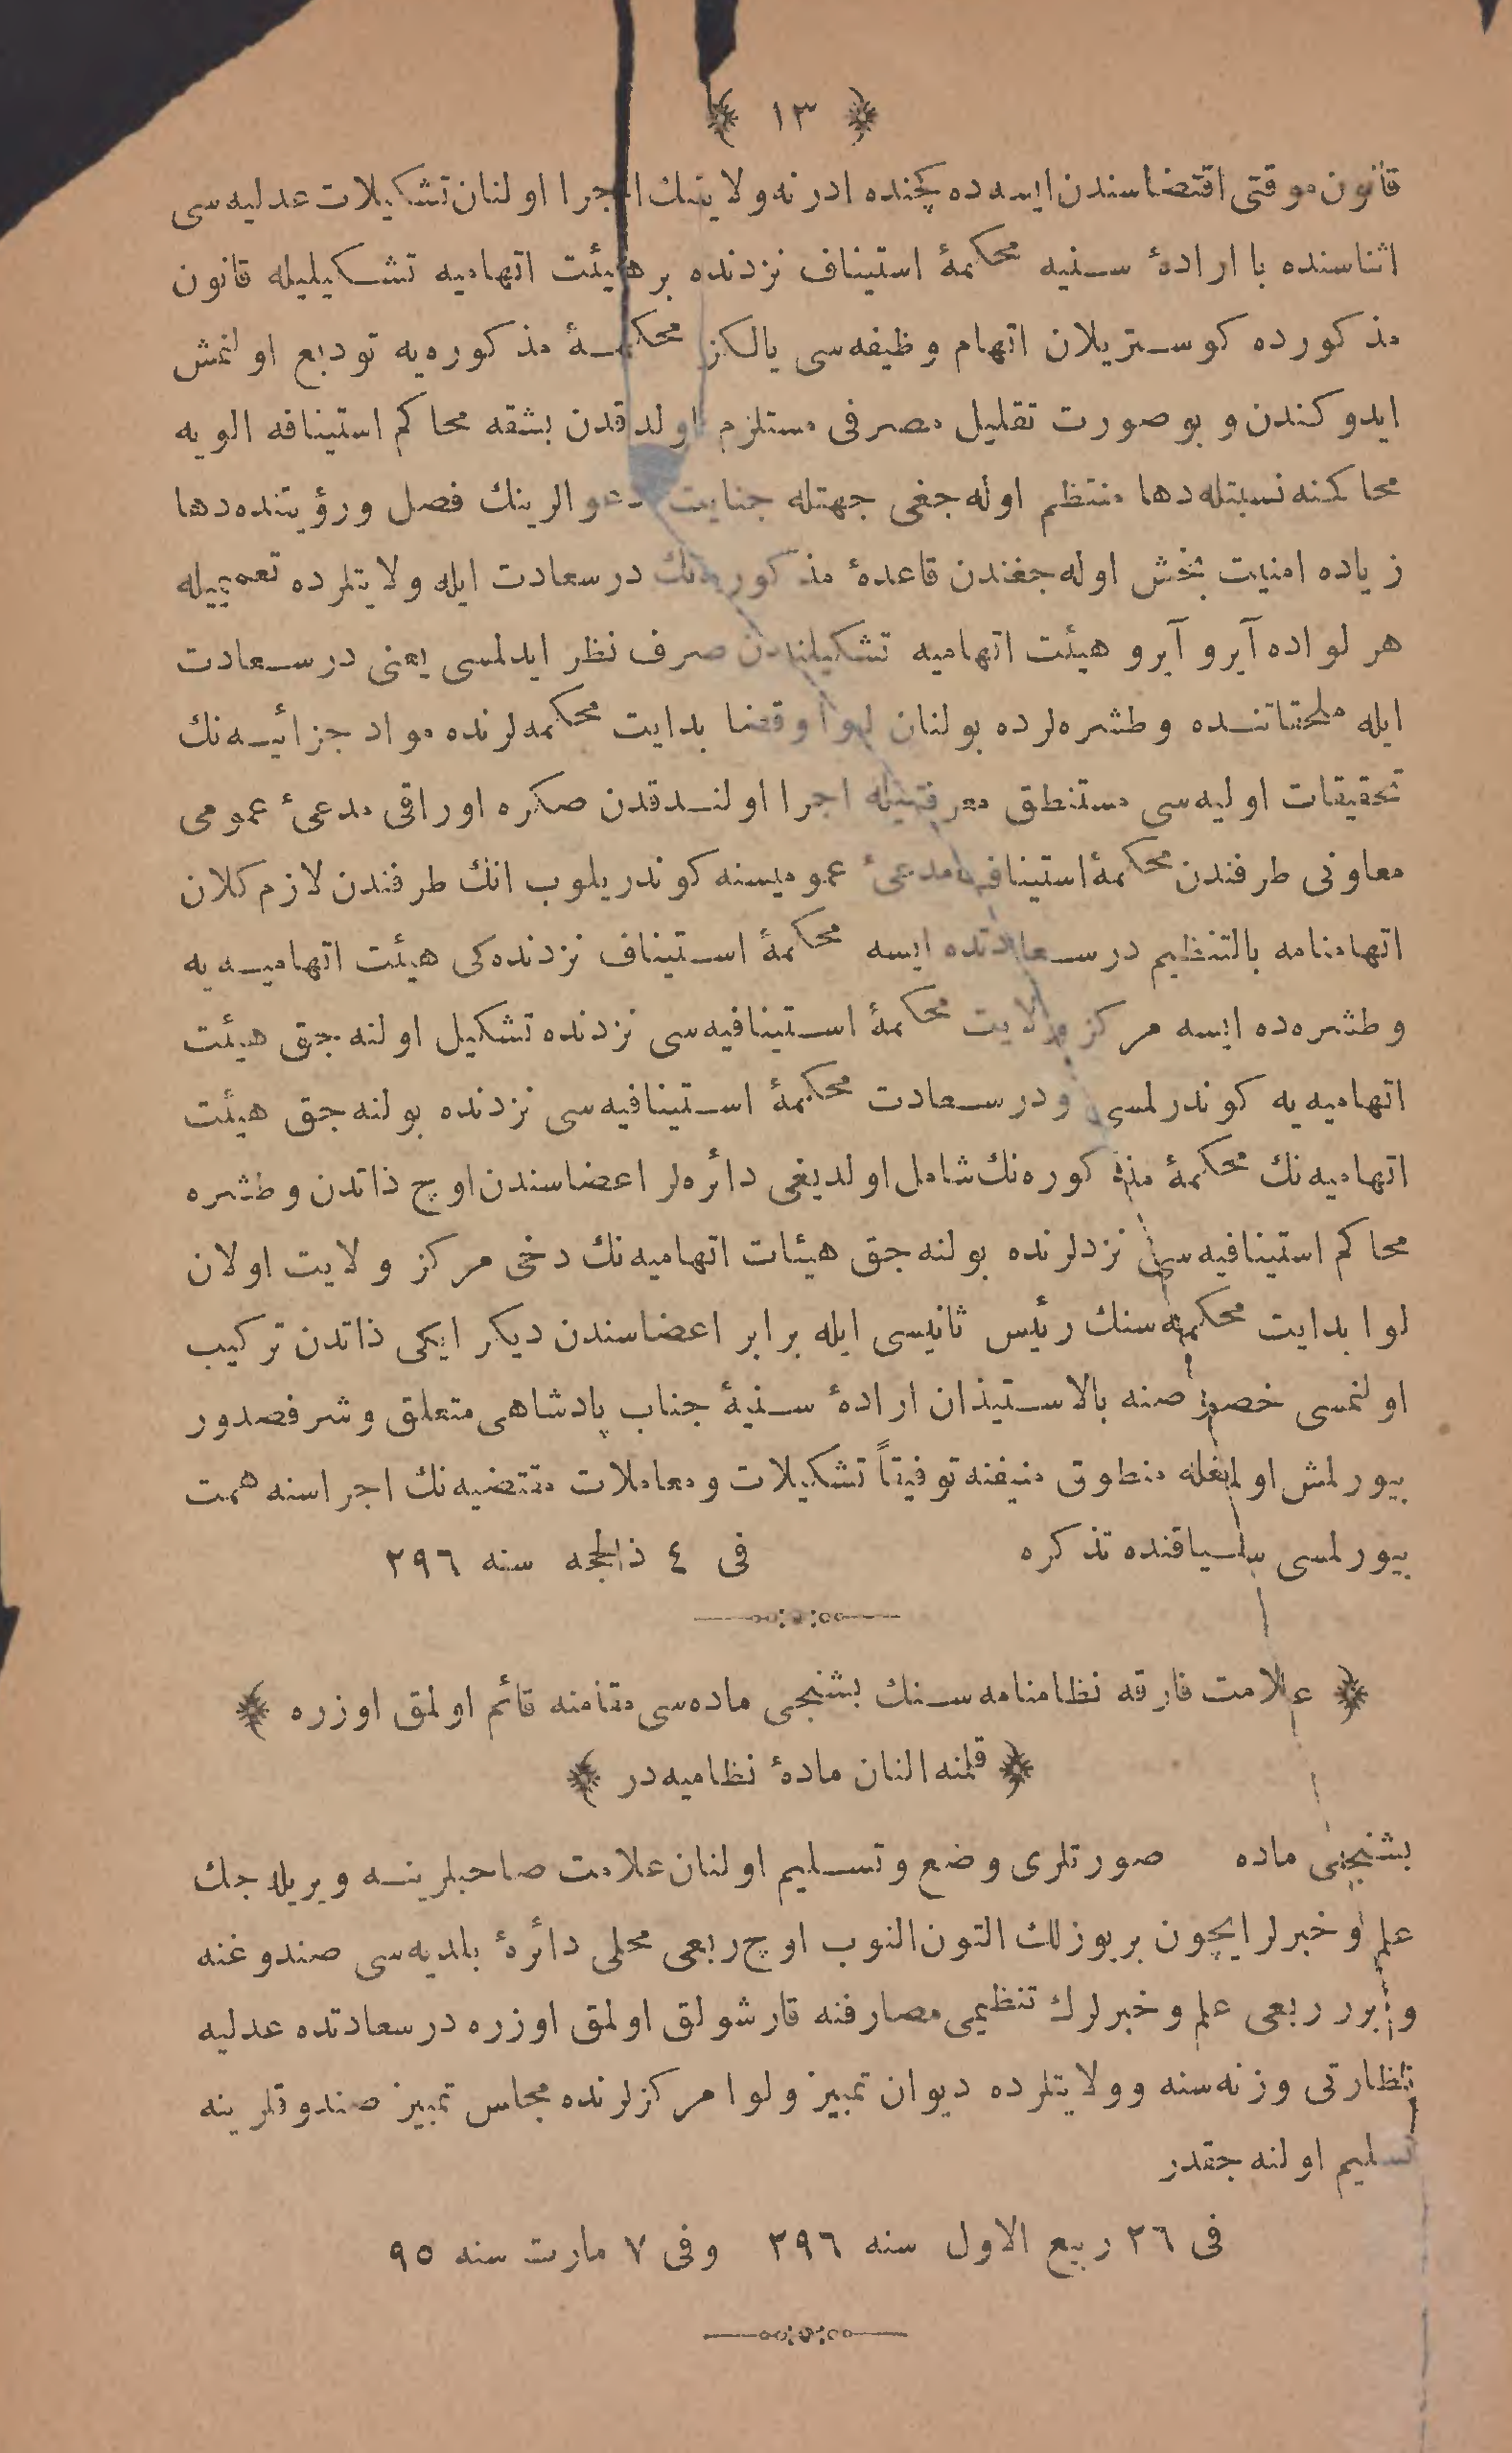 ﴿ ١٣ ﴾
قانون موقتی اقتضاسندن ایسه ده كچنده ادرنه ولایتنك اجرا اولنان تشكیلات عدلیه سی
اثناسنده با ارادهٔ سنیه محكمهٔ استیناف نزدنده بر هیئت اتهامیه تشكیلیله قانون
مذكورده كوستریلان اتهام وظیفه سی یالكز محكمهٔ مذكوره یه تودیع اولنمش
ایدوكندن و بو صورت تقلیل مصرفی مستلزم اولدقدن بشقه محاكم استینافه الویه
محاكمنه نسبتله دها منتظم اوله جغی جهتله جنایت دعوالرینك فصل و رؤیتنده دها
زیاده امنیت بخش اوله جغندن قاعدهٔ مذكوره نك درسعادت ایله ولایتلرده تعمیمیله
هر لواده آیرو آیرو هیئت اتهامیه تشكیلندن صرف نظر ایدلمسی یعنی درسعادت
ایله ملحقاتنده و طشره لرده بولنان لوا و قضا بدایت محكمه لرنده مواد جزائیه نك
تحقیقات اولیه سی مستنطق معرفتیله اجرا اولندقدن صكره اوراقی مدعیٔ عمومی
معاونی طرفندن محكمهٔ استینافیه مدعیٔ عمومیسنه كوندریلوب انك طرفندن لازم كلان
اتهامنامه بالتنظیم درسعادتده ایسه محكمهٔ استیناف نزدنده كی هیئت اتهامیه یه
و طشره ده ایسه مركز ولایت محكمهٔ استینافیه سی نزدنده تشكیل اولنه جق هیئت
اتهامیه یه كوندرلمسی و درسعادت محكمهٔ استینافیه سی نزدنده بولنه جق هیئت
اتهامیه نك محكمهٔ مذكوره نك شامل اولدیغی دائره لر اعضاسندن اوچ ذاتدن و طشره
محاكم استینافیه سی نزدلرنده بولنه جق هیئات اتهامیه نك دخی مركز ولایت اولان
لوا بدایت محكمه سنك رئیس ثانیسی ایله برابر اعضاسندن دیكر ایكی ذاتدن تركیب
اولنمسی خصوصنه بالاستیذان ارادهٔ سنیهٔ جناب پادشاهی متعلق و شرفصدور
بیورلمش اولمغله منطوق منیفنه توفیقاً تشكیلات و معاملات مقتضیه نك اجراسنه همت
بیورلمسی سیاقنده تذكره فی ٤ ذالحجه سنه ٢٩٦
﴿ علامت فارقه نظامنامه سنك بشنجی ماده سی مقامنه قائم اولمق اوزره ﴾
﴿ قلمنه النان مادهٔ نظامیه در ﴾
بشنجی ماده صورتلری وضع و تسلیم اولنان علامت صاحبلرینه ویریله جك
علم و خبرلر ایچون بر یوزلك التون النوب اوچ ربعی محلی دائرهٔ بلدیه سی صندوغنه
و برر ربعی علم و خبرلرك تنظیمی مصارفنه قارشولق اولمق اوزره درسعادتده عدلیه
نظارتی وزنه سنه و ولایتلرده دیوان تمییز و لوا مركزلرنده مجلس تمییز صندوقلرینه
تسلیم اولنه جقدر
فی ٢٦ ربیع الاول سنه ٢٩٦ و فی ٧ مارت سنه ٩٥